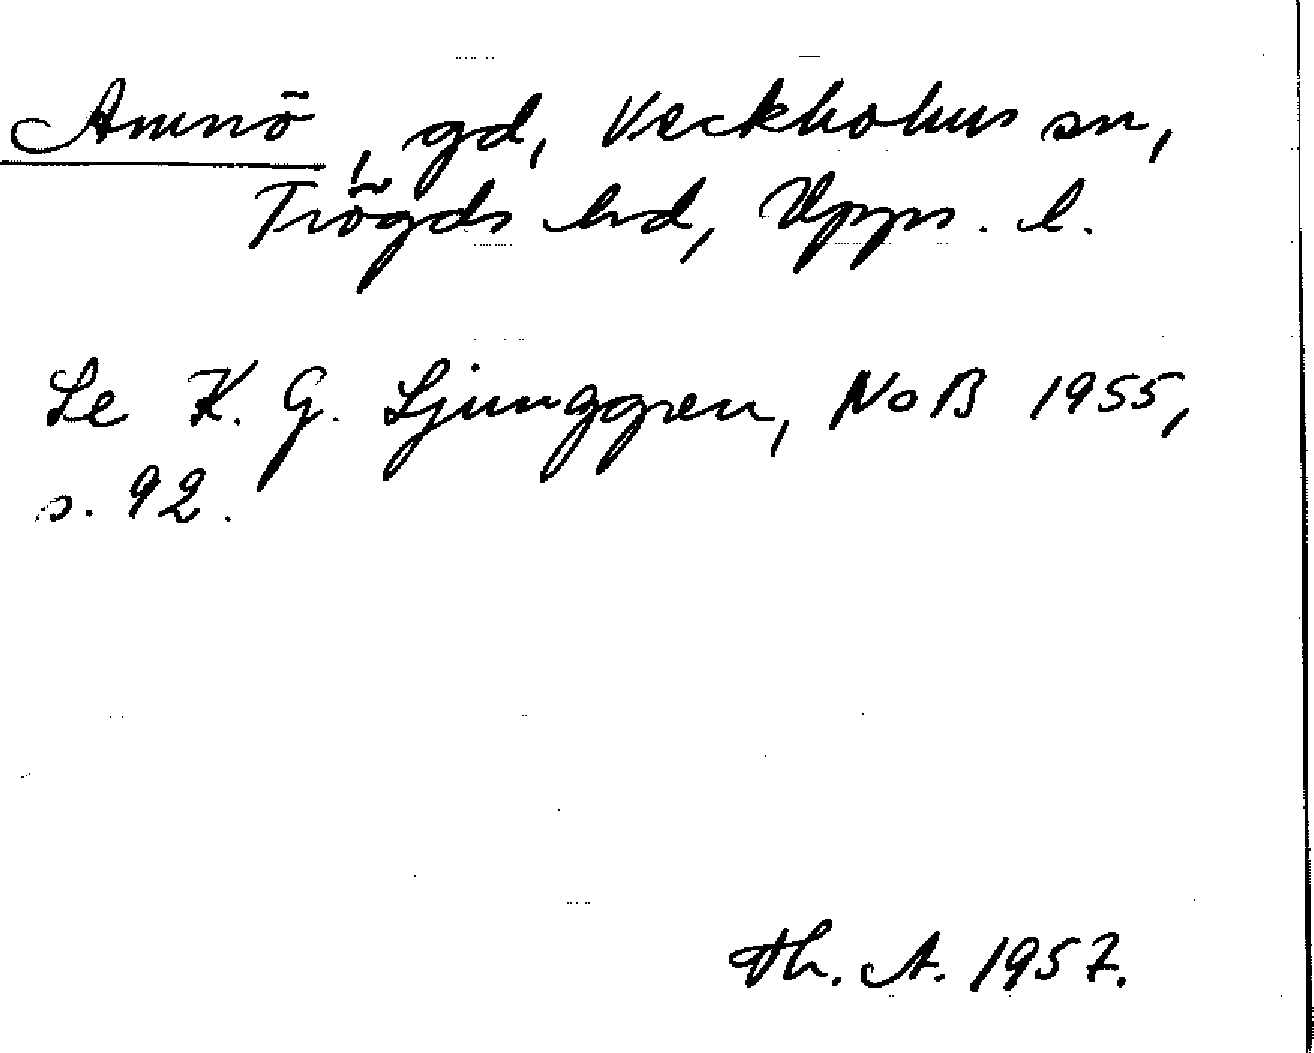 Amnö, gd, Veckholms sn,
Trögds hd, Upps. l.
Se K. G. Ljunggren, NoB 1955,
s. 92.
Th. A. 1957.